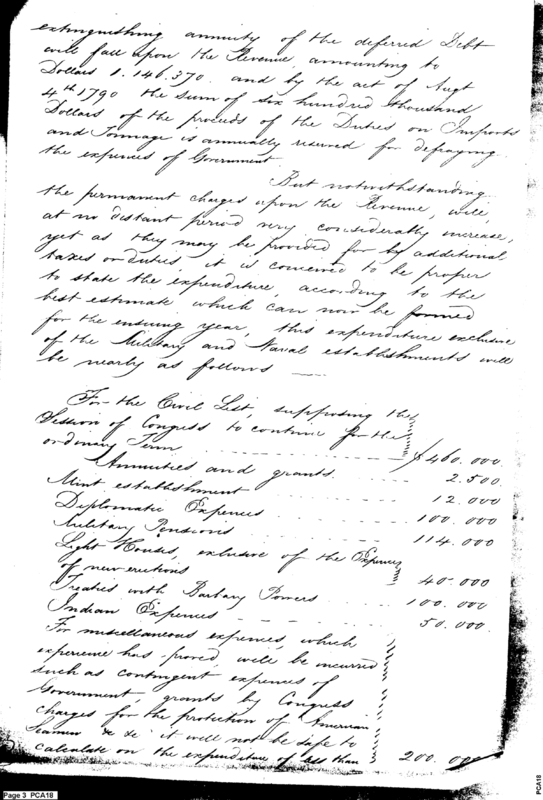 extinguishing annuity of the deferred Debt
will fall upon the Revenue, amounting to
Dollars 1.146.370. and by the act of Augt
4th 1790 the sum of six hundred thousand
Dollars of the proceeds of the Duties on Imports
and Tonnage is annually reserved for defraying
the expences of Government
But notwithstanding
the permanent charges upon the Revenue, will,
at no distant period very considerably increase,
yet as they may be provided for by additional
taxes or duties, it is conceived to be proper
to state the expenditure, according to the
best estimate which can now be formed
for the ensuing year, this expenditure exclusive
of the Military and Naval establishments will
be nearly as follows —
For the Civil List, supposing the
Session of Congress to continue for the
ordinary Term $460.000.
Annuities and grants 2.500.
Mint establishment 12.000
Diplomatic Expences 100.000
Military Pensions 114.000
Light Houses, exclusive of the Expences
of new erections 40.000
Treaties with Barbary Powers 100.000
Indian Expences 50.000.
For miscellaneous expences, which
experience has proved, will be incurred
such as contingent expences of
Government, grants by Congress
charges for the protection of American
Seamen &c &c it will not be safe to
calculate on the expenditure of less than 200.000
Page 3 PCA18
PCA18